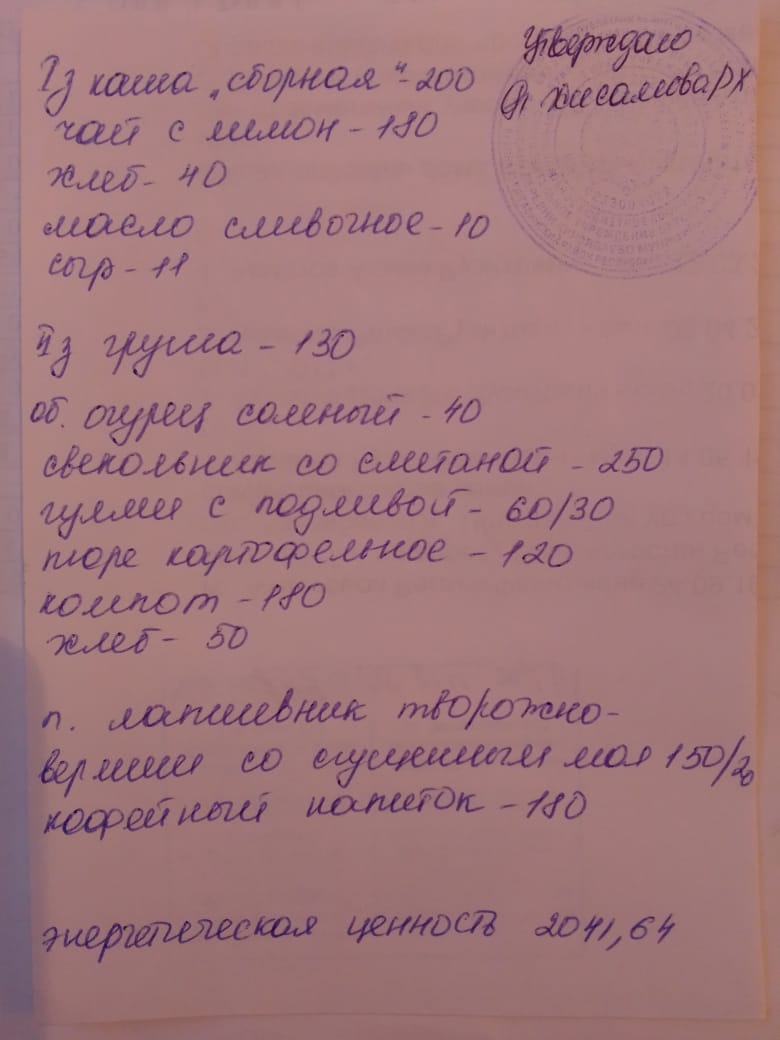 Утверждаю
Хисамова Р Х
Iз каша „сборная" - 200
чай с лимон - 180
хлеб - 40
масло сливочное - 10
сыр - 11
IIз груша - 130
об. огурец соленый - 40
свекольник со сметаной - 250
гуляш с подливой - 60/30
пюре картофельное - 120
компот - 180
хлеб - 50
п. лапшевник творожно-
вермиш со сгущенным мол 150/20
кофейный напиток - 180
энергетическая ценность 2041,64